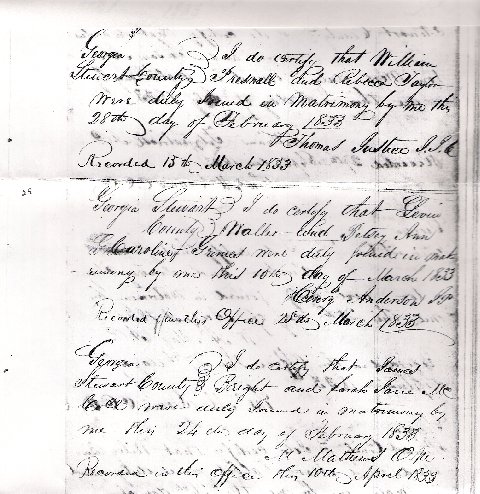 Georgia } I do certify that William
Stewart County } and Rebecca Taylor
were duly joined in matrimony by me this
28th day of February 1833
Thomas Justice
Recorded 15th March 1833
Georgia Stewart } I do certify that
County } and Ann
Caroline were duly joined in
by me this 10th day of March 1833
Henry Anderson
Recorded in this Office 25th March 1833
Georgia } I do certify that James
Stewart County } Bright and Sarah Jane Mc
were duly joined in matrimony by
me this 24th day of February 1833
Mathews
Recorded in this Office this 10th April 1833